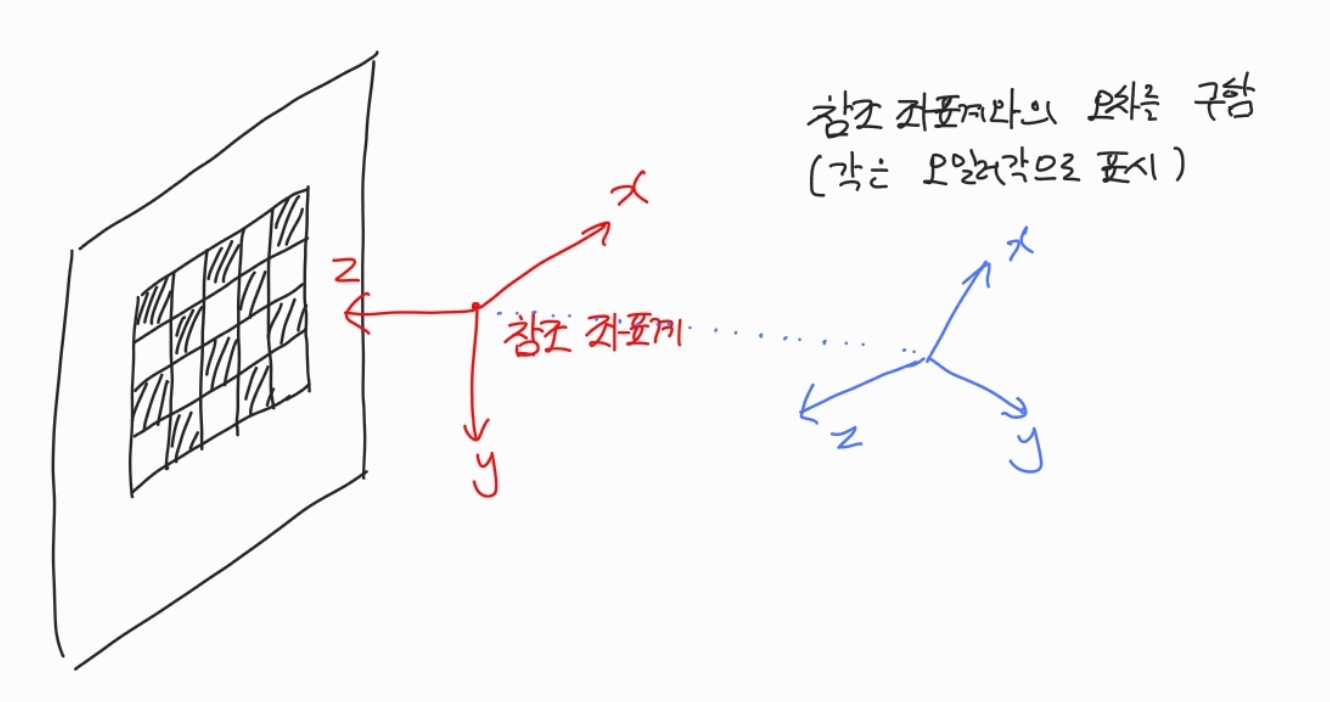 참조 좌표계와의 오차를 구함
(각은 오일러각으로 표시)
x
z
참조 좌표계
y
x
z
y